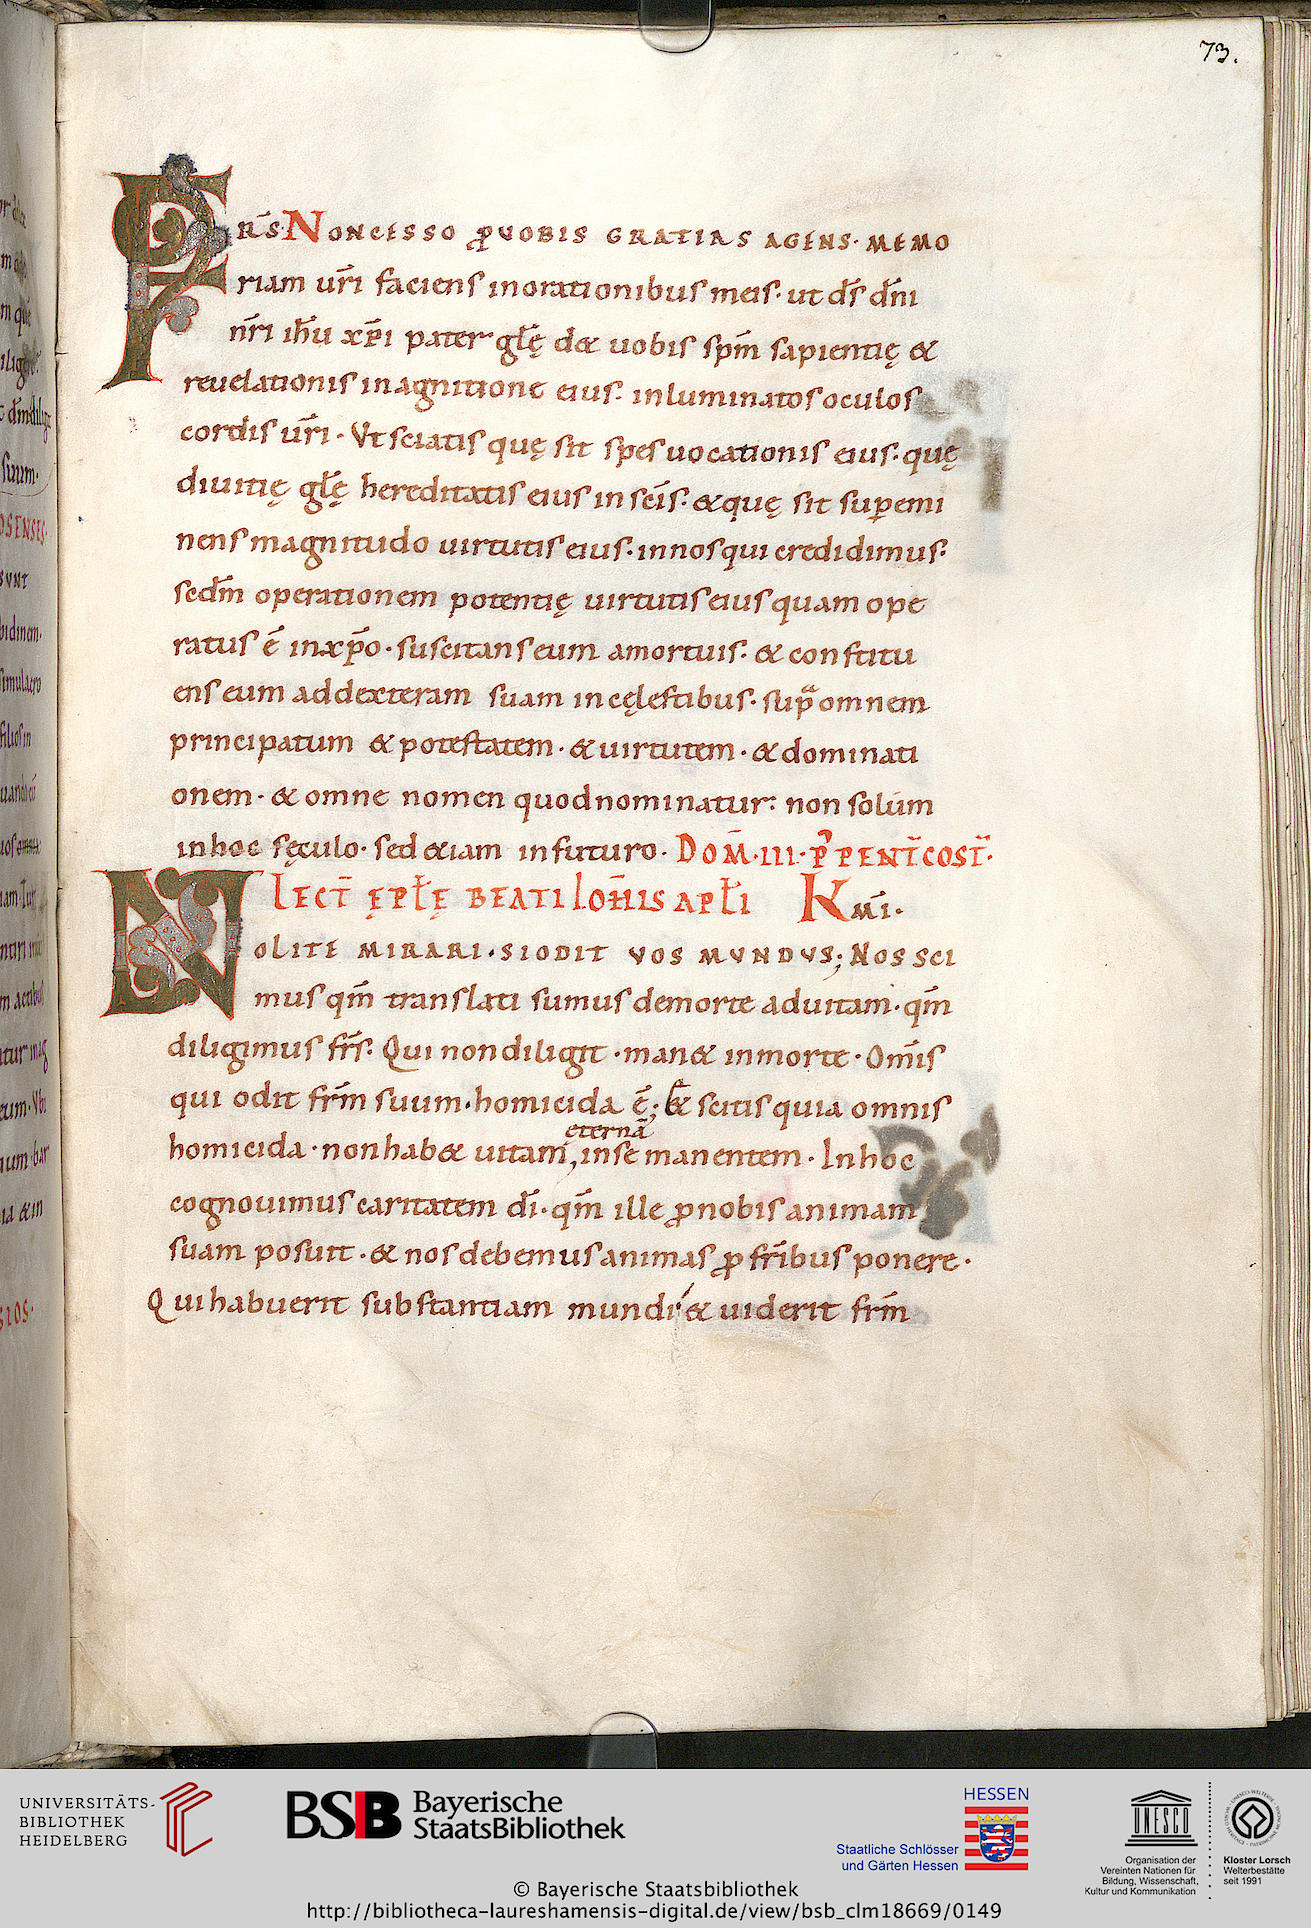 73.
FRS̄. NON CESSO ꝓ VOBIS GRATIAS AGENS. MEMO
riam ur̄i faciens inorationibus meis. ut d̄s d̄ni
nr̄i ih̄u xp̄i pater gl̄ę det uobis sp̄m sapientię &
reuelationis inagnitione eius. inluminatos oculos
cordis ur̄i. Ut sciatis quę sit spes uocationis eius. quę
diuitię gl̄ę hereditatis eius in sc̄is. & quę sit sup̱emi
nens magnitudo uirtutis eius. innos qui credidimus.
secd̄m operationem potentię uirtutis eius quam ope
ratus ē inxp̄o. suscitans eum amortuis. & constitu
ens eum addexteram suam incęlestibus. sup̱ omnem
principatum & potestatem. & uirtutem. & dominati
onem. & omne nomen quod nominatur. non solum
inhoc sęculo. sed &iam infuturo. DOM̄. III. P̄ PENT̄COST̄.
LECT̄ ĘPŁĘ BEATI IOH̄IS APŁI Km̄i.
NOLITE MIRARI. SI ODIT VOS MVNDVS; NOS SCI
mus qm̄ translati sumus demorte aduitam. qm̄
diligimus fr̄s. Qui non diligit. man& inmorte. Om̄is
qui odit fr̄m suum. homicida ē; & scitis quia omnis
eternā
homicida. nonhab& uitam, inse manentem. Inhoc
cognouimus caritatem d̄i. qm̄ ille ꝓnobis animam
suam posuit. & nos debemus animas ꝓ fr̄ibus ponere.
Qui habuerit substantiam mundi & uiderit fr̄m
UNIVERSITÄTS-
BIBLIOTHEK
HEIDELBERG
BSB Bayerische
StaatsBibliothek
HESSEN
Staatliche Schlösser
und Gärten Hessen
UNESCO
Organisation der
Vereinten Nationen für
Bildung, Wissenschaft,
Kultur und Kommunikation
Kloster Lorsch
Welterbestätte
seit 1991
© Bayerische Staatsbibliothek
http://bibliotheca-laureshamensis-digital.de/view/bsb_clm18669/0149